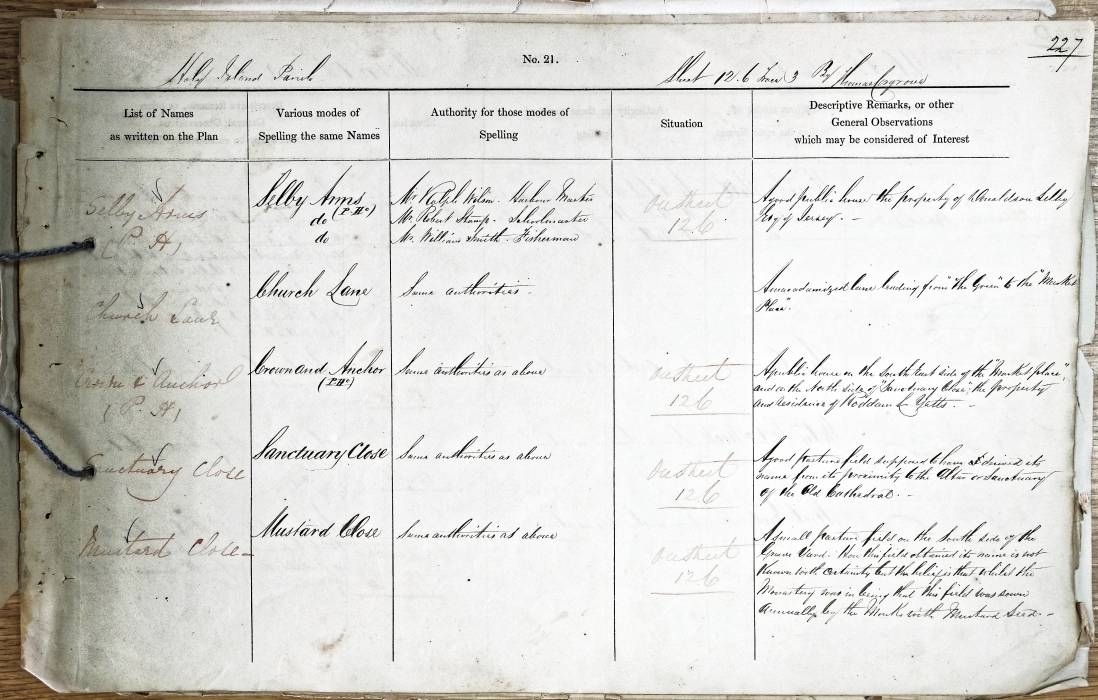 227
No. 21.
Holy Island Parish
Sheet 12.6 Trace 3 By Thomas Cosgrove
List of Names
as written on the Plan
Various modes of
Spelling the same Names
Authority for those modes of
Spelling
Situation
Descriptive Remarks, or other
General Observations
which may be considered of Interest
Selby Arms
(P. H)
Selby Arms
(P.Ho)
do
do
Mr. Ralph Wilson. Harbour Master
Mr. Robert Stamp. Schoolmaster
Mr. William Smith. Fisherman
On sheet
12.6
A good public house the property of Donaldson Selby
Esqr of Jersey. -
Church Lane
Church Lane
Same authorities.
A macadamized lane leading from "the Green" to the "Market
Place".
Crown & Anchor
(P. H)
Crown and Anchor
(P.Ho)
Same authorities as above
On sheet
12.6
A public house on the South East side of the "Market place",
and on the North side of "Sanctuary Close", the property
and residence of Yetts. -
Sanctuary Close
Sanctuary Close
Same authorities as above
On sheet
12.6
A good pasture field supposed to have derived its
name from its proximity to the Altar or Sanctuary
of the Old Cathedral. -
Mustard Close
Mustard Close
Same authorities as above
On sheet
12.6
A small pasture field on the South side of the
Grave Yard. How this field obtained its name is not
known with certainty but the belief is that whilst the
Monastery was in being that this field was sown
annually by the Monks with Mustard Seed. -